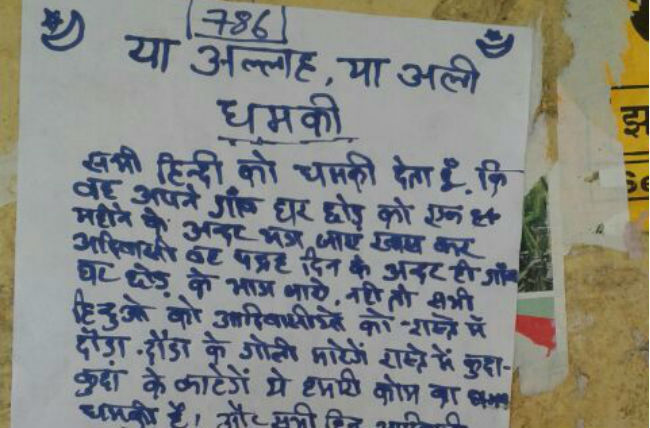 786
या अल्लाह, या अली
धमकी
सभी हिन्दी को धमकी देता हूँ, कि
वह अपने गाँव घर छोड़ को एक
महीने के अन्दर भाग जाए खास कर
आदिवासी वह पन्द्रह दिन के अन्दर ही गाँव
घर छोड़ के भाग जाये, नही तो सभी
हिन्दुओ को आदिवासीयो को रास्ते में
दौड़ा-दौड़ा के गोली मारेगें रास्ते में कुदा-
कुदा के काटेगें ये हमारी कौम का
धमकी है। और सभी
झ